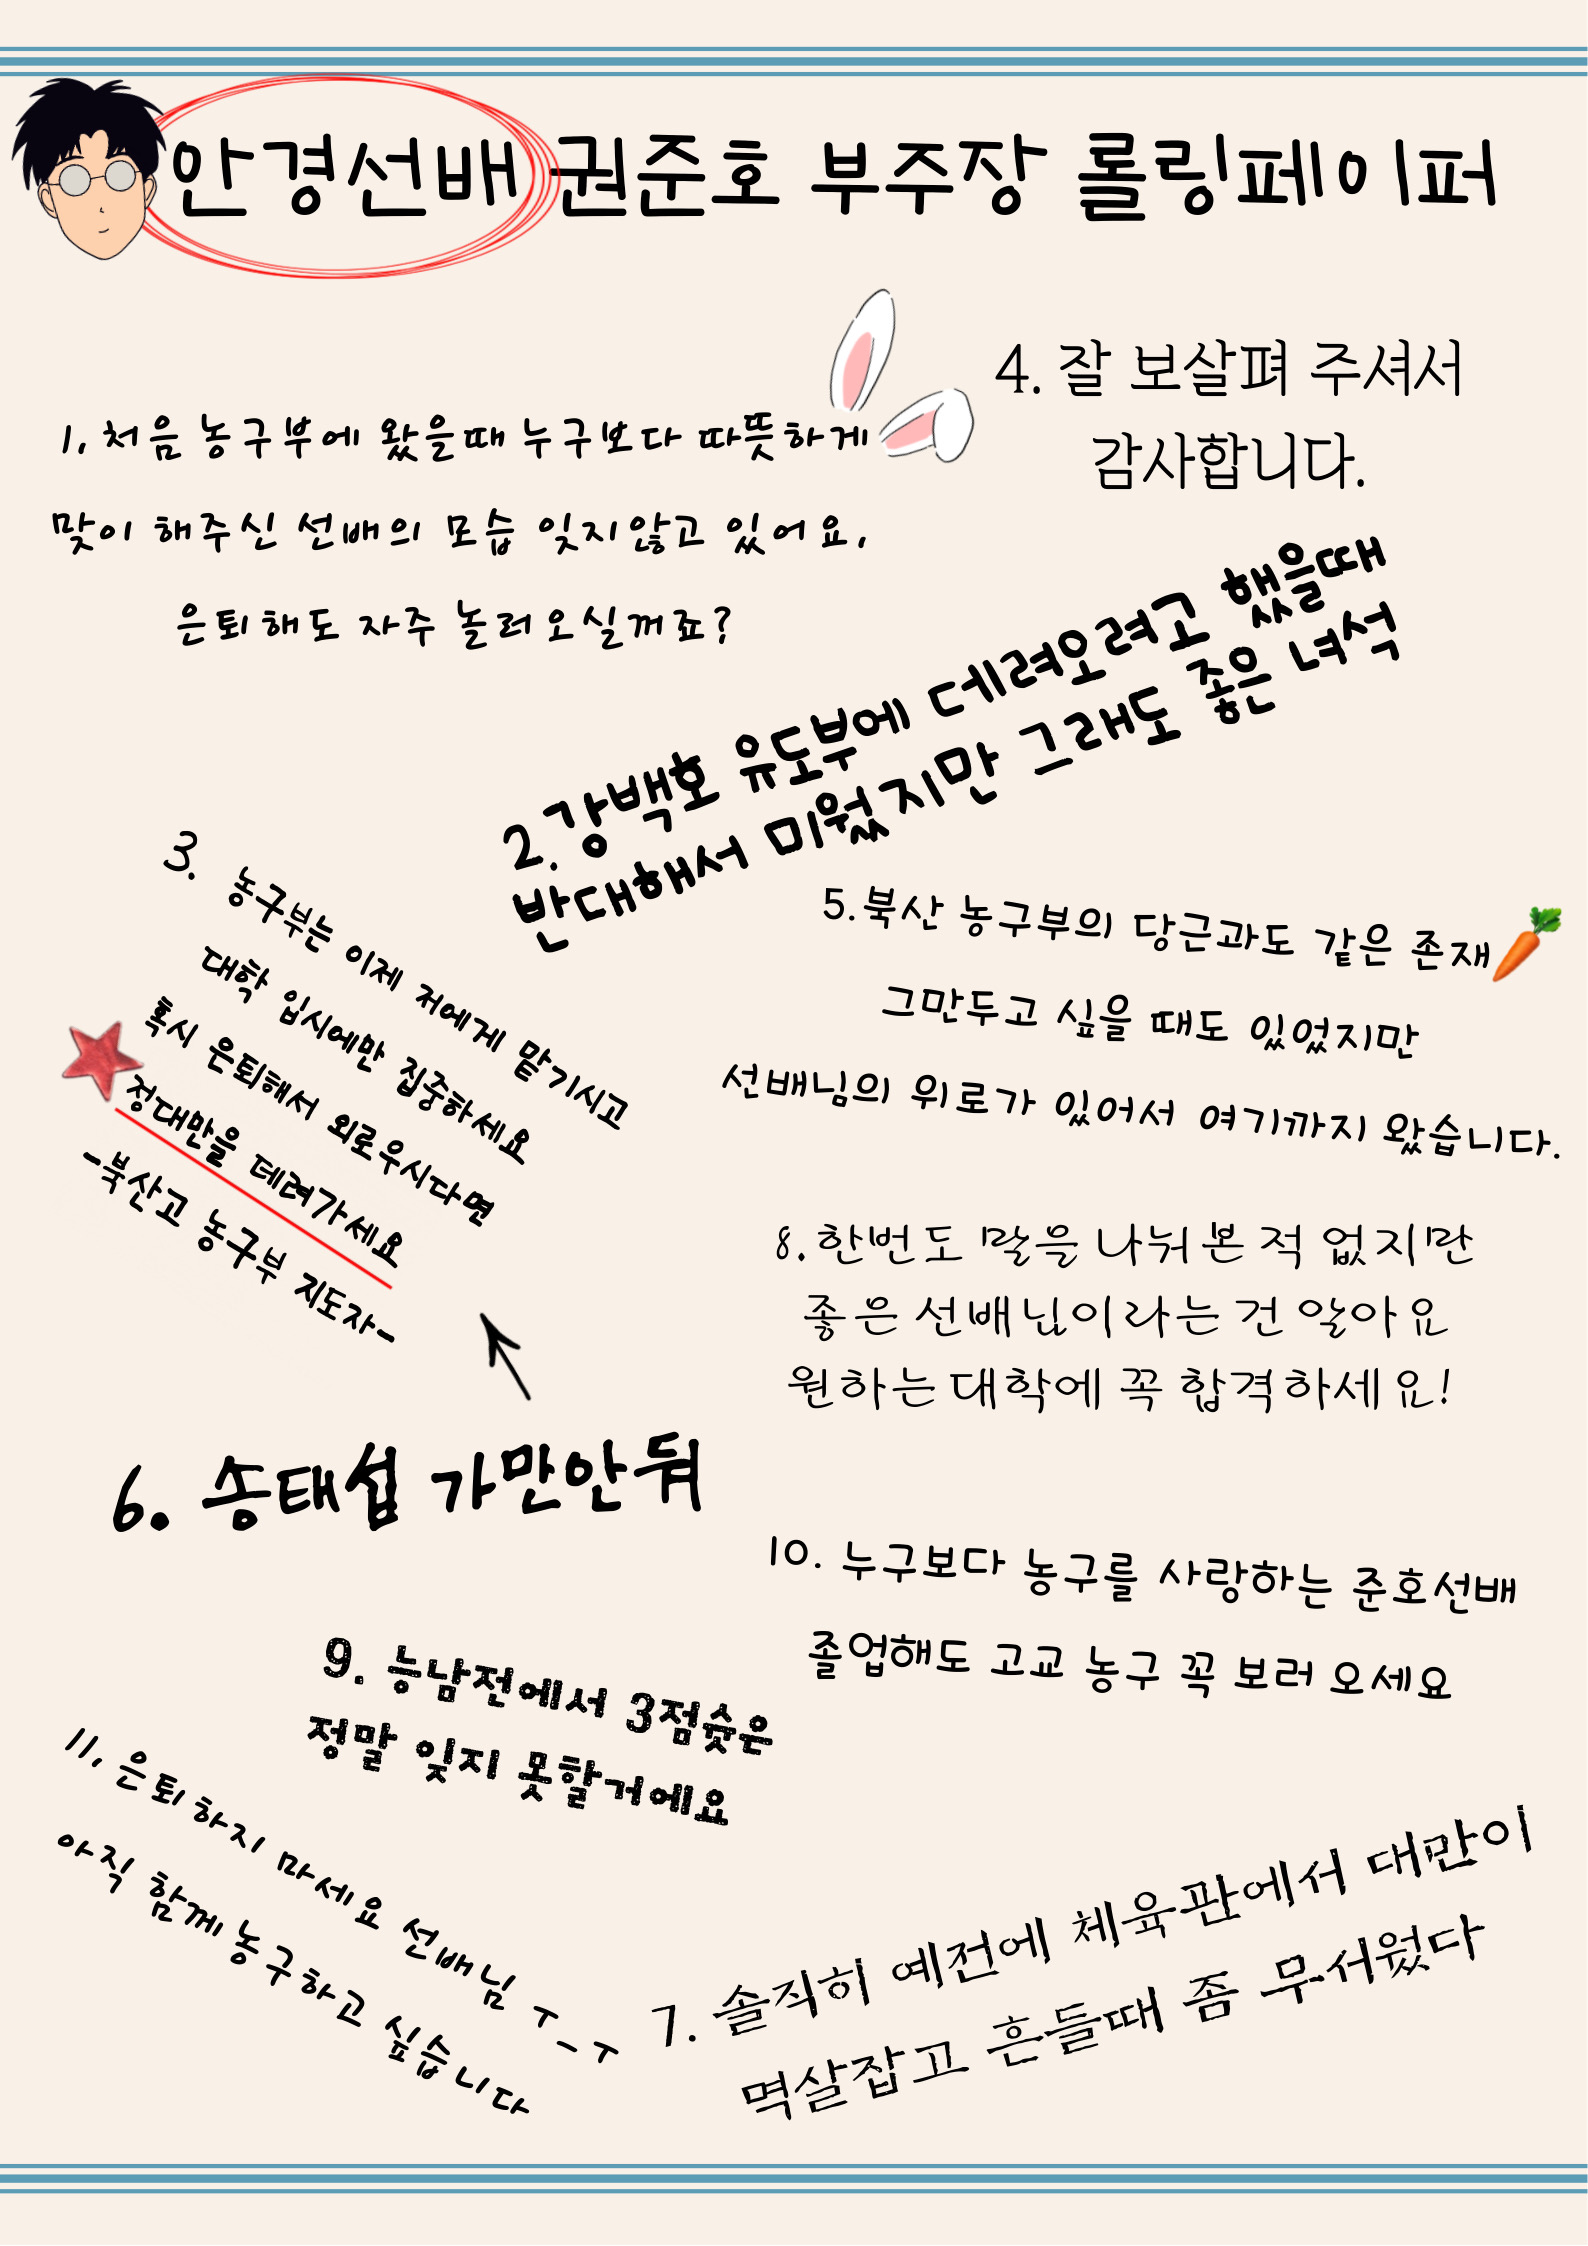 안경선배 권준호 부주장 롤링페이퍼
1. 처음 농구부에 왔을때 누구보다 따뜻하게
맞이 해주신 선배의 모습 잊지않고 있어요.
은퇴해도 자주 놀러 오실꺼죠?
4. 잘 보살펴 주셔서
감사합니다.
2. 강백호 유도부에 데려오려고 했을때
반대해서 미웠지만 그래도 좋은 녀석
3. 농구부는 이제 저에게 맡기시고
대학 입시에만 집중하세요
혹시 은퇴해서 외로우시다면
정대만을 데려가세요
-북산고 농구부 지도자-
5. 북산 농구부의 당근과도 같은 존재
그만두고 싶을 때도 있었지만
선배님의 위로가 있어서 여기까지 왔습니다.
6. 송태섭 가만안둬
8. 한번도 말을 나눠본 적 없지만
좋은 선배님이라는 건 알아요
원하는 대학에 꼭 합격하세요!
10. 누구보다 농구를 사랑하는 준호선배
졸업해도 고교 농구 꼭 보러 오세요
9. 능남전에서 3점슛은
정말 잊지 못할거에요
11. 은퇴하지 마세요 선배님 ㅜ_ㅜ
아직 함께 농구하고 싶습니다
7. 솔직히 예전에 체육관에서 대만이
멱살잡고 흔들때 좀 무서웠다